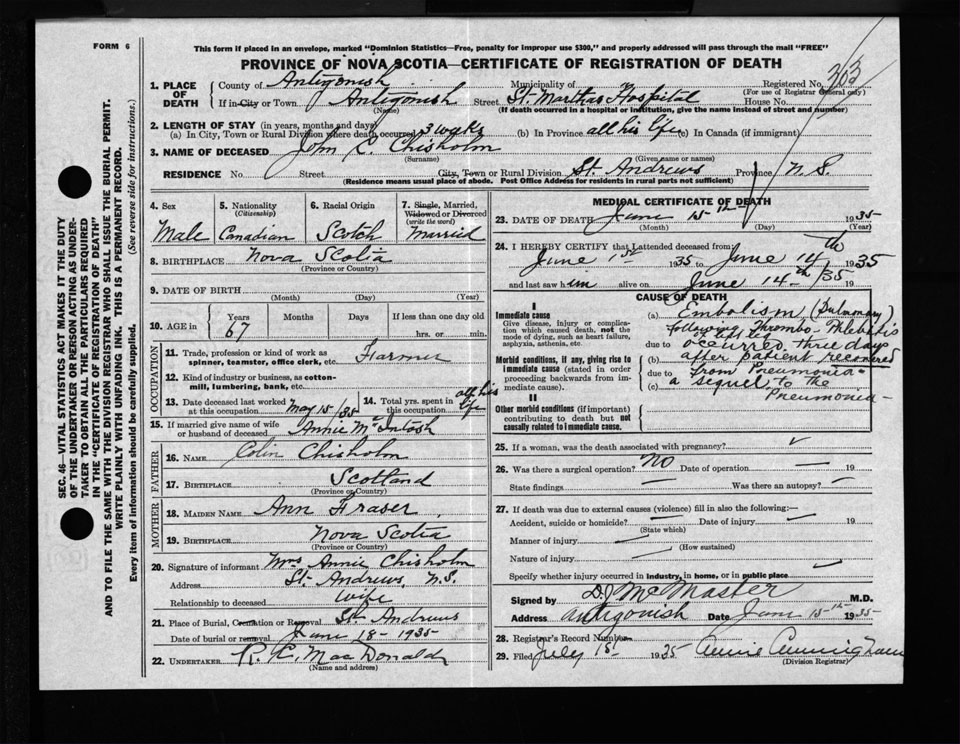 FORM 6
This form if placed in an envelope, marked "Dominion Statistics—Free, penalty for improper use $300," and properly addressed will pass through the mail "FREE"
PROVINCE OF NOVA SCOTIA—CERTIFICATE OF REGISTRATION OF DEATH
SEC. 46—VITAL STATISTICS ACT MAKES IT THE DUTY
OF THE UNDERTAKER OR PERSON ACTING AS UNDER-
TAKER TO OBTAIN ALL THE PARTICULARS REQUIRED
IN THE "CERTIFICATE OF REGISTRATION OF DEATH"
AND TO FILE THE SAME WITH THE DIVISION REGISTRAR WHO SHALL ISSUE THE BURIAL PERMIT.
WRITE PLAINLY WITH UNFADING INK. THIS IS A PERMANENT RECORD.
Every item of information should be carefully supplied. (See reverse side for instructions.)
1. PLACE OF DEATH
County of Antigonish Municipality of Registered No. 363
(For use of Registrar General only)
If in City or Town Antigonish Street St. Marthas Hospital House No.
(Name) (If death occurred in a hospital or institution, give the name instead of street and number)
2. LENGTH OF STAY (in years, months and days)
(a) In City, Town or Rural Division where death occurred 3 weeks (b) In Province all his life (c) In Canada (if immigrant)
3. NAME OF DECEASED John C. Chisholm
(Surname) (Given name or names)
RESIDENCE No. Street City, Town or Rural Division St. Andrews Province N.S.
(Residence means usual place of abode. Post Office Address for residents in rural parts not sufficient)
4. Sex Male
5. Nationality (Citizenship) Canadian
6. Racial Origin Scotch
7. Single, Married, Widowed or Divorced (write the word) Married
8. BIRTHPLACE Nova Scotia
(Province or Country)
9. DATE OF BIRTH
(Month) (Day) (Year)
10. AGE in Years 67 Months Days If less than one day old hrs. or min.
OCCUPATION
11. Trade, profession or kind of work as spinner, teamster, office clerk, etc. Farmer
12. Kind of industry or business, as cotton-mill, lumbering, bank, etc.
13. Date deceased last worked at this occupation May 15/35
14. Total yrs. spent in this occupation all his life
15. If married give name of wife or husband of deceased Annie McIntosh
FATHER
16. NAME Colin Chisholm
17. BIRTHPLACE Scotland
(Province or Country)
MOTHER
18. MAIDEN NAME Ann Fraser
19. BIRTHPLACE Nova Scotia
(Province or Country)
20. Signature of informant Mrs Annie Chisholm
Address St. Andrews, N.S.
Relationship to deceased Wife
21. Place of Burial, Cremation or Removal St. Andrews
Date of burial or removal June 18-1935
22. UNDERTAKER R. C. MacDonald
(Name and address)
MEDICAL CERTIFICATE OF DEATH
23. DATE OF DEATH June 15th 1935
(Month) (Day) (Year)
24. I HEREBY CERTIFY that I attended deceased from:
June 1st 1935 to June 14th 1935
and last saw him alive on June 14th /35
CAUSE OF DEATH
I
Immediate cause
Give disease, injury or complication which caused death, not the mode of dying, such as heart failure, asphyxia, asthenia, etc.
Morbid conditions, if any, giving rise to immediate cause (stated in order proceeding backwards from immediate cause).
II
Other morbid conditions (if important) contributing to death but not causally related to immediate cause.
(a) Embolism, (Pulmonary)
following Thrombo-Phlebitis
due to occurred three days
(b) after patient recovered
due to from Pneumonia-
(c) a sequel to the
Pneumonia-
25. If a woman, was the death associated with pregnancy?
26. Was there a surgical operation? No Date of operation 19
State findings Was there an autopsy?
27. If death was due to external causes (violence) fill in also the following:—
Accident, suicide or homicide? Date of injury 19
(State which)
Manner of injury
(How sustained)
Nature of injury
Specify whether injury occurred in industry, in home, or in public place
Signed by D. J. McMaster M.D.
Address Antigonish Date June 15th 1935
28. Registrar's Record Number
29. Filed July 1st 1935 Annie Cunningham
(Division Registrar)